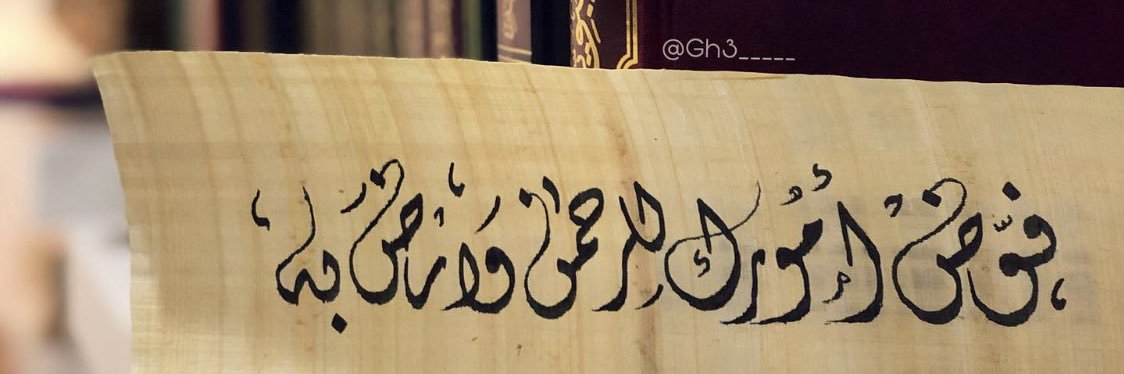 @Gh3_____
فوّض أمورك للرحمن وارض به